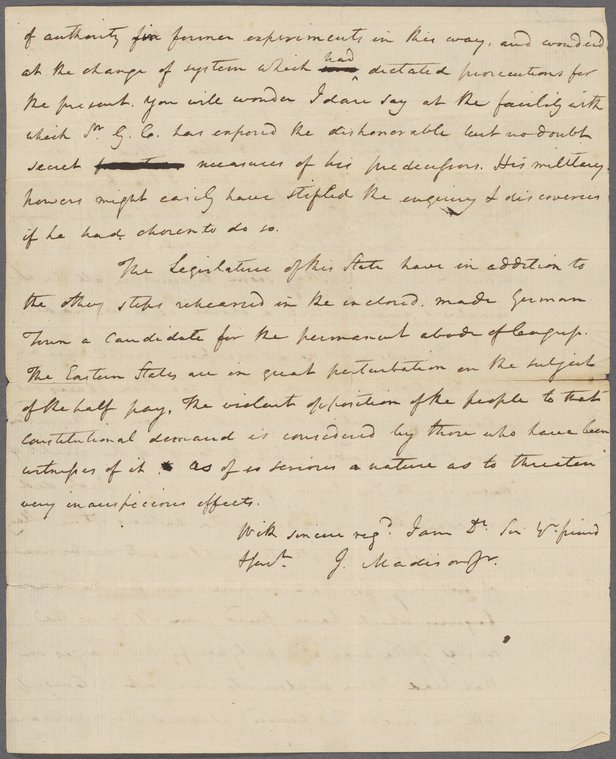 of authority for former experiments in this way. and wondered
at the change of system which had dictated prosecutions for
the present. You will wonder I dare say at the facility with
which Sr. G. C. has exposed the dishonorable but no doubt
secret measures of his predecessors. His military
powers might easily have stifled the enquiry & discoveries
if he had chosen to do so.
The Legislature of this State have in addition to
the other steps rehearsed in the inclosed. made German
Town a candidate for the permanent abode of Congress.
The Eastern States are in great perturbation on the subject
of the half pay. The violent opposition of the people to that
Constitutional demand is considered by those who have been
witnesses of it as of so serious a nature as to threaten
very inauspicious effects.
With sincere regd. I am Dr. Sir Yr. friend
& Servt. J. Madison Jr.